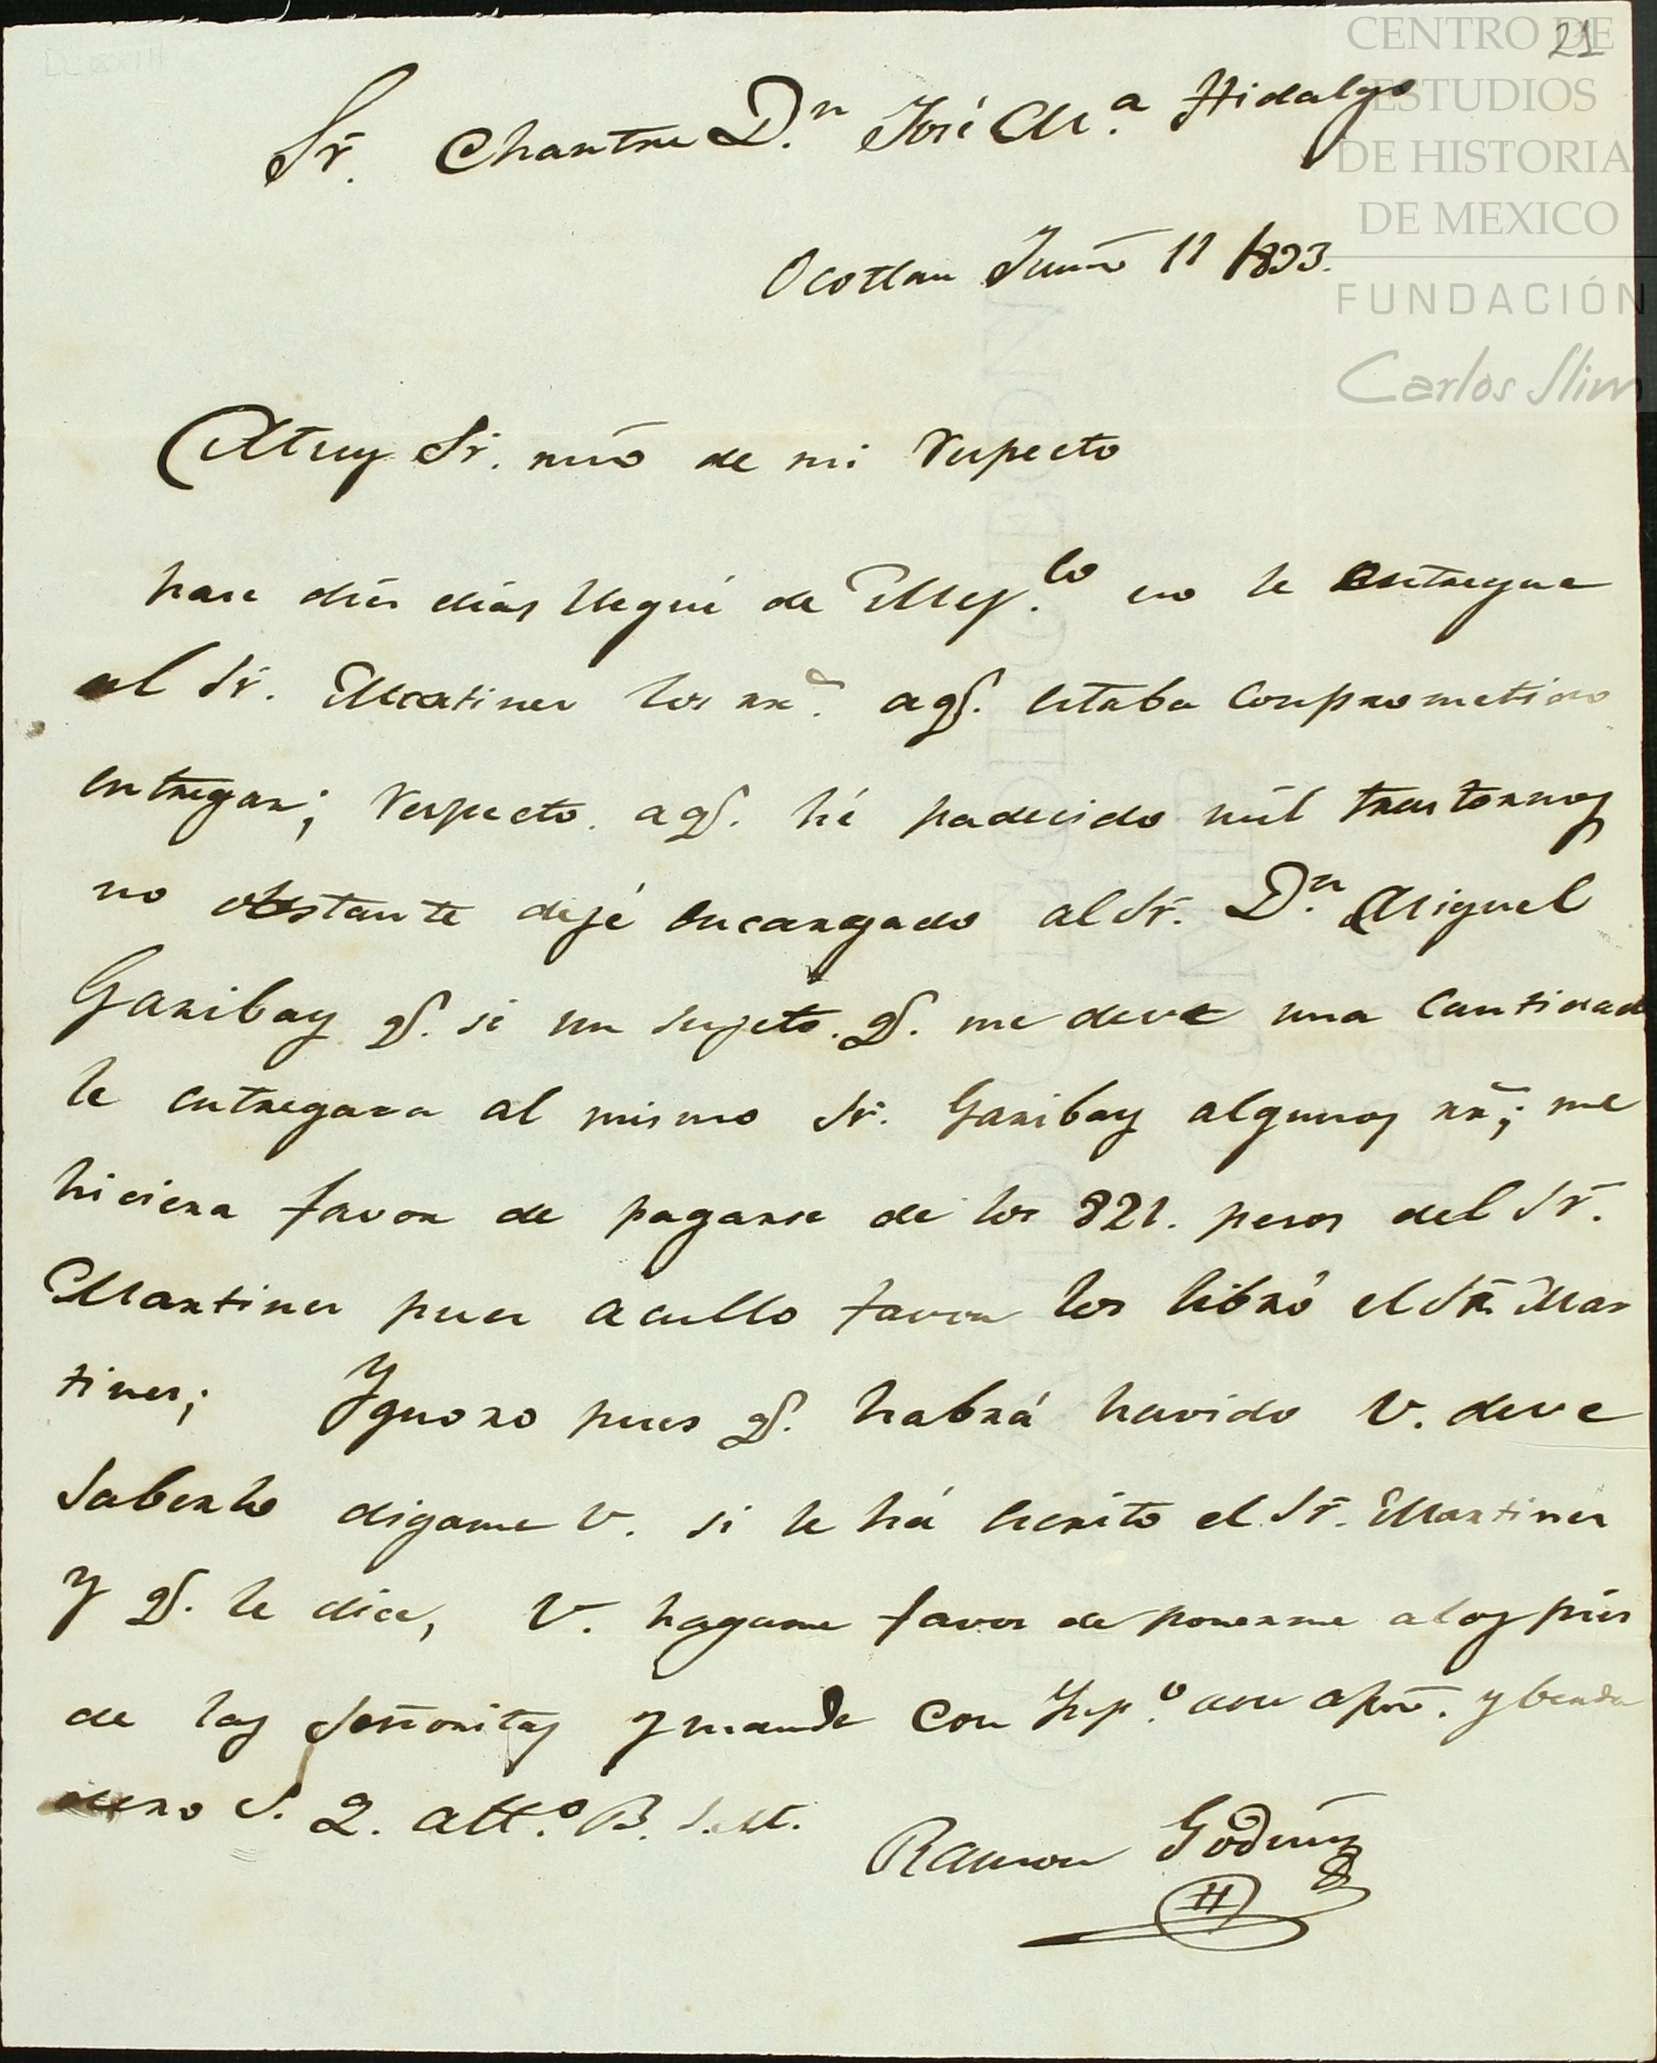 21
CENTRO DE
ESTUDIOS
DE HISTORIA
DE MEXICO
FUNDACIÓN
Carlos Slim
Sr. Chantre D.n José M.a Hidalgo
Ocotlan Junio 11 1833.
Muy Sr. mio de mi respecto
hase dies dias llegué de no le entregue
al Sr. Martines los rr.s aq.e estaba comprometido
entregar; respecto. aq.e hé padecido mil trastornos
no obstante dejé encargado al Sr. D.n Miguel
Garibay q.e si un sujeto. q.e me deve una cantidad
le entregara al mismo Sr. Garibay algunos rr.s; me
hiciera favor de pagarse de los 821. pesos del Sr.
Martines pues a cullo favor los libró el Sr. Mar
tines; Ygnoro pues q.e habrá havido V. deve
saberlo digame V. si le há escrito el Sr. Martines
y q.e le dice, V. hagame favor de ponerme a los pies
de las Señoritas y mande con Imp.o asu y berda
dero S. Q. att.o B. S. M.
Ramon Godines